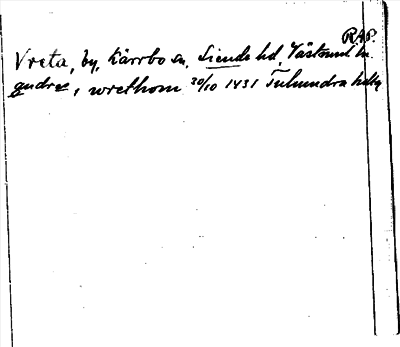 R.A.P.
Vreta, by, Kärrbo sn, Siende hd, Västmanl. ln.
gudree, i wrethom 30/10 1431 Tuhundra